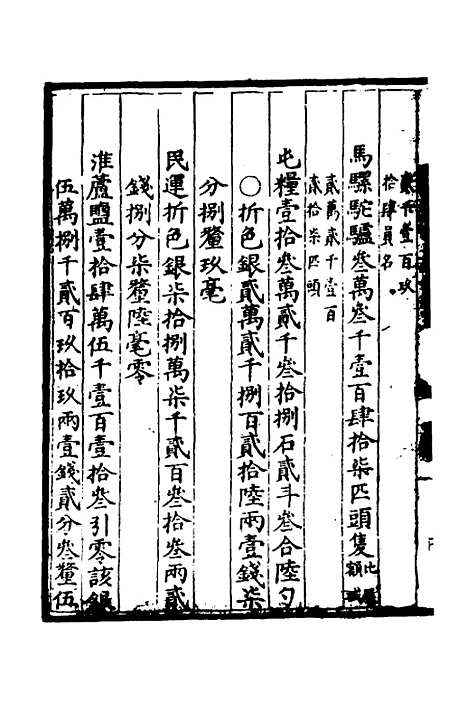 貳千壹百玖
拾肆員名
馬騾駝驢叁萬叁千壹百肆拾柒匹頭隻比原額減
貳萬貳千壹百
貳拾柒匹頭
屯糧壹拾叁萬貳千叁拾捌石貳斗叁合陸勺
〇折色銀貳萬貳千捌百貳拾陸兩壹錢柒
分捌釐玖毫
民運折色銀柒拾捌萬柒千貳百叁拾叁兩貳
錢捌分柒釐陸毫零
淮蘆鹽壹拾肆萬伍千壹百壹拾叁引零該銀
伍萬捌千貳百玖拾玖兩壹錢貳分叁釐伍